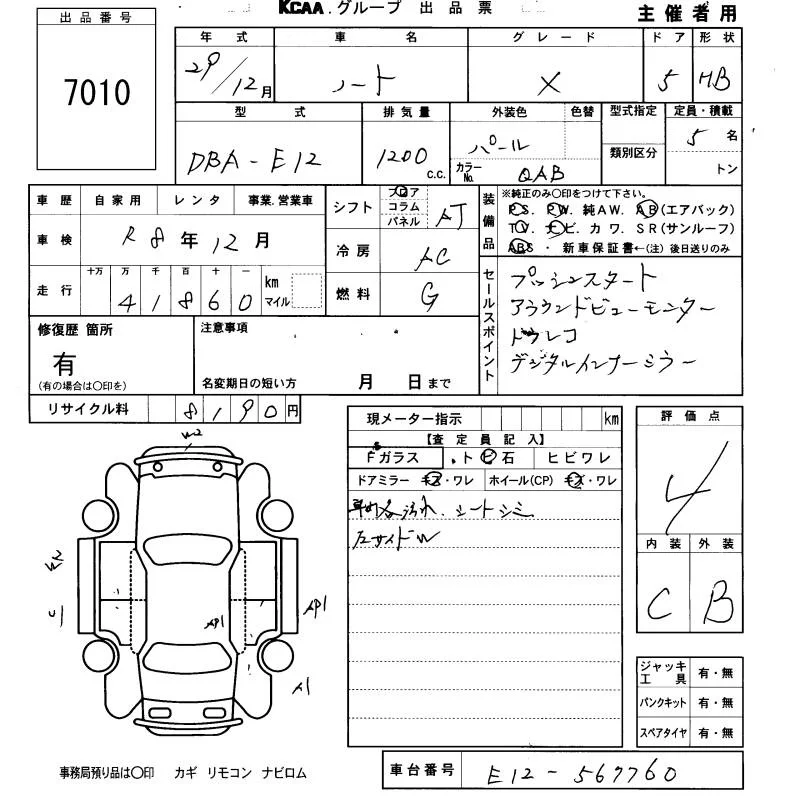 KCAA.グループ 出品票
主催者用
出品番号
7010
年式 車名 グレード ドア 形状
29/12月 ノート X 5 HB
型式 排気量 外装色 色替 型式指定 定員・積載
DBA-E12 1200c.c. パール 類別区分 5名
カラーNo. QAB トン
車歴 自家用 レンタ 事業.営業車
車検 R8年12月
走行 十万 万 千 百 十 一 km マイル
41860
シフト フロア コラム パネル AT
冷房 AC
燃料 G
装備品 ※純正のみ〇印をつけて下さい。
PS. PW. 純AW. AB(エアバック)
TV. ナビ. カワ. SR(サンルーフ)
ABS ・ 新車保証書←(注) 後日送りのみ
セールスポイント
プッシュスタート
アラウンドビューモニター
ドラレコ
デジタルインナーミラー
修復歴 箇所
有
(有の場合は〇印を)
注意事項
名変期日の短い方 月 日まで
リサイクル料 8190円
現メーター指示 km
【査定員記入】
Fガラス .トビ石 ヒビワレ
ドアミラー キズ・ワレ ホイール(CP) キズ・ワレ
汚れ.シートシミ
左サイドW
評価点
4
内装 外装
C B
W2
W2
U1
AP1
AP1
A1
ジャッキ工具 有・無
パンクキット 有・無
スペアタイヤ 有・無
事務局預り品は〇印 カギ リモコン ナビロム
車台番号 E12-567760